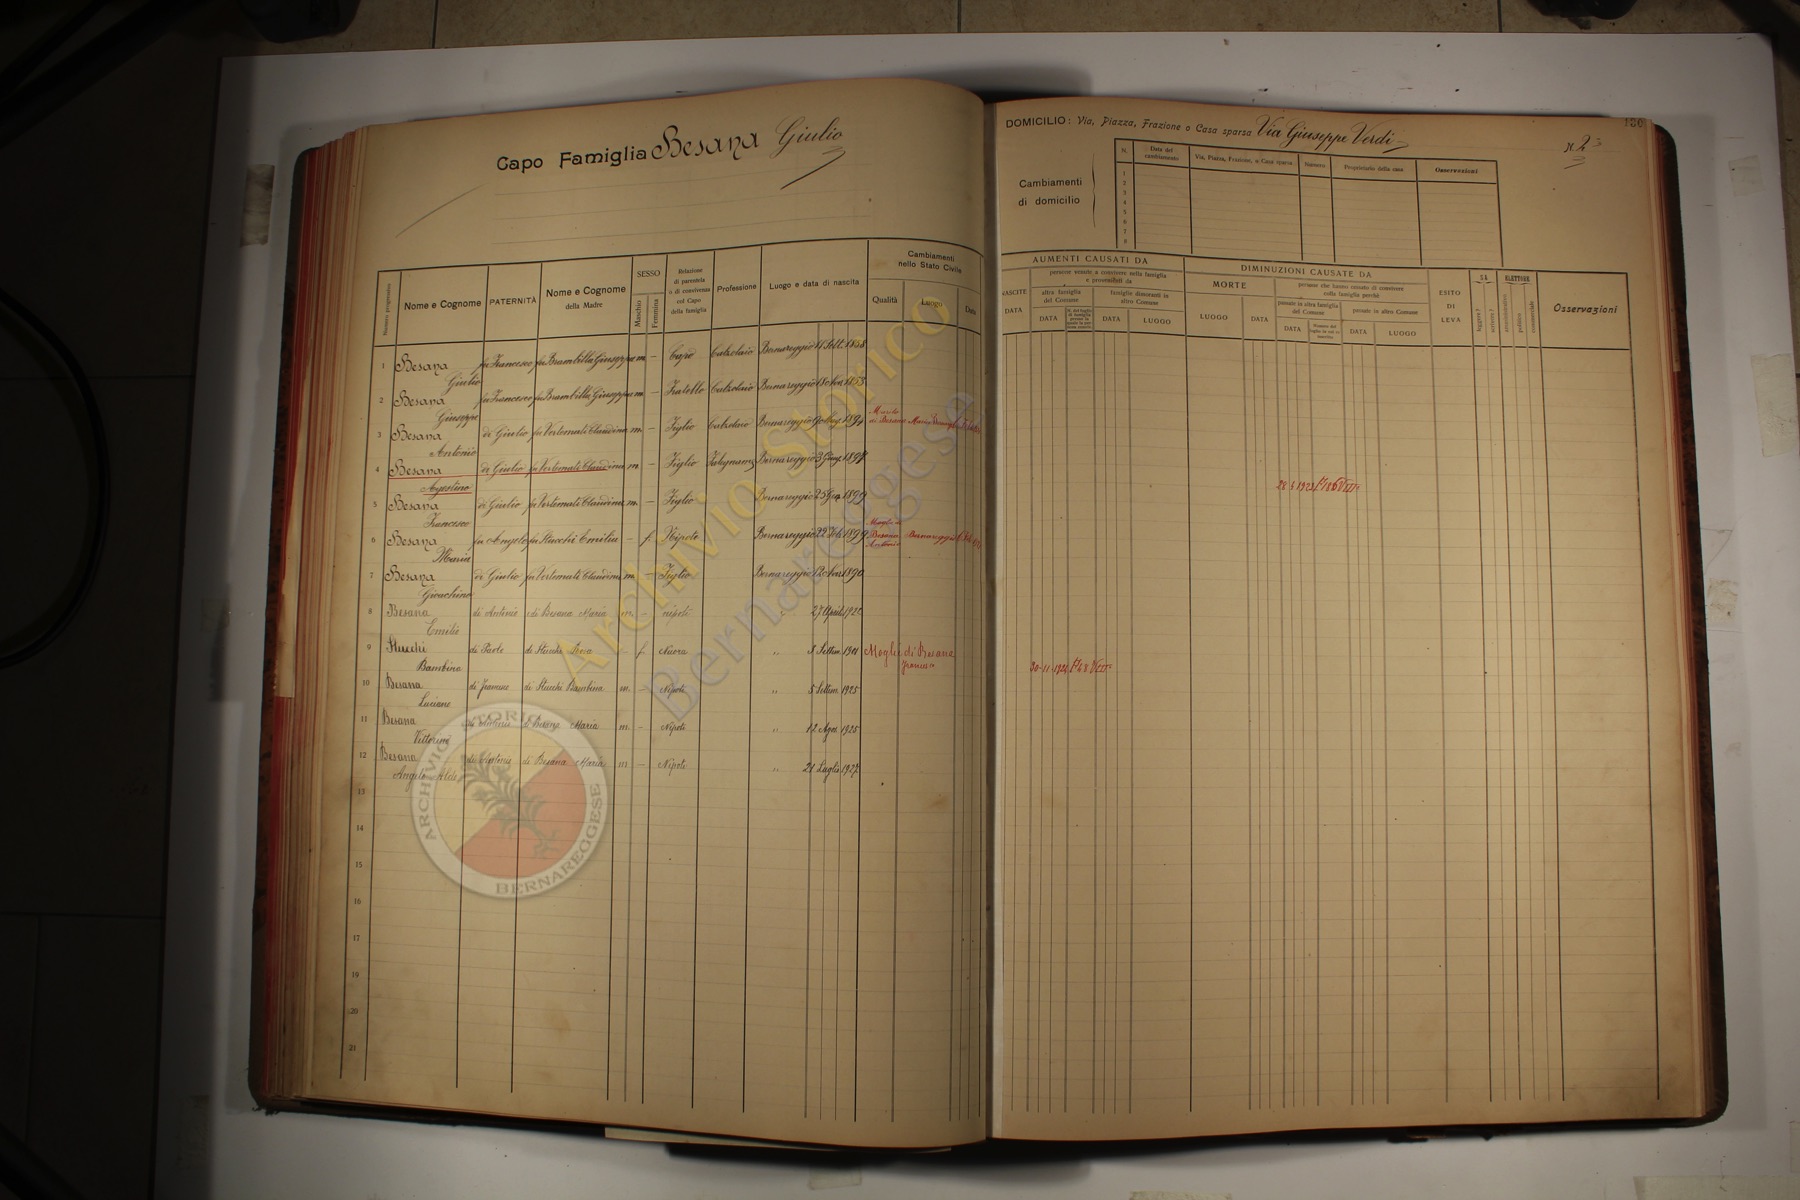 Capo Famiglia Besana Giulio
DOMICILIO: Via, Piazza, Frazione o Casa sparsa Via Giuseppe Verdi
n. 2
130
Cambiamenti
di domicilio
N. Data del cambiamento Via, Piazza, Frazione, o Casa sparsa Numero Proprietario della casa Osservazioni
1
2
3
4
5
6
7
8
Numero progressivo
Nome e Cognome
PATERNITÀ
Nome e Cognome
della Madre
SESSO
Maschio
Femmina
Relazione
di parentela
o di convivenza
col Capo
della famiglia
Professione
Luogo e data di nascita
Cambiamenti
nello Stato Civile
Qualità Luogo Data
AUMENTI CAUSATI DA
NASCITE
DATA
persone venute a convivere nella famiglia
e provenienti da
altra famiglia
del Comune
DATA
famiglie dimoranti in
altro Comune
DATA LUOGO
DIMINUZIONI CAUSATE DA
MORTE
LUOGO DATA
persone che hanno cessato di convivere
colla famiglia perchè
passate in altra famiglia
del Comune
DATA
passate in altro Comune
DATA LUOGO
ESITO
DI
LEVA
SA
leggere?
scrivere?
ELETTORE
amministrativo
politico
commerciale
Osservazioni
1 Besana fu Francesco fu Brambilla Giuseppa m — Capo Calzolaio Bernareggio 11 Sett. 1858
Giulio
2 Besana fu Francesco fu Brambilla Giuseppa m — Fratello Calzolaio Bernareggio 18 Nov. 1853
Giuseppe
3 Besana di Giulio fu Vertemati Claudina m. — Figlio Calzolaio Bernareggio 1894
Antonio
4 Besana di Giulio fu Vertemati Claudina m — Figlio Falegname Bernareggio 3 1897
Agostino 28
5 Besana di Giulio fu Vertemati Claudina m — Figlio Bernareggio 25 1899
Francesco
6 Besana fu Angelo fu Stucchi Emilia — f. Nipote Bernareggio 22 1899 Moglie di Besana Antonio Bernareggio
Maria
7 Besana di Giulio fu Vertemati Claudina m — Figlio Bernareggio 12 1890
Gioachino
8 Besana di Antonio di Besana Maria m. — nipoti " 27 Aprile
Emilio
9 Stucchi di Paolo di Stucchi Rosa — f. Nuora " 3 Settem 1901 Moglie di Besana
Bambina Francesco 30-11-1924
10 Besana di Francesco di Stucchi Bambina m. — Nipoti " 5 Settem 1925
Luciano
11 Besana di Antonio di Besana Maria m. — Nipoti " 12 Agos 1925
Vittorino
12 Besana di Antonio di Besana Maria m — Nipoti " 21 Luglio 1927
Angelo
13
14
15
16
17
18
19
20
21
Archivio Storico
Bernareggese
ARCHIVIO STORICO
BERNAREGGESE